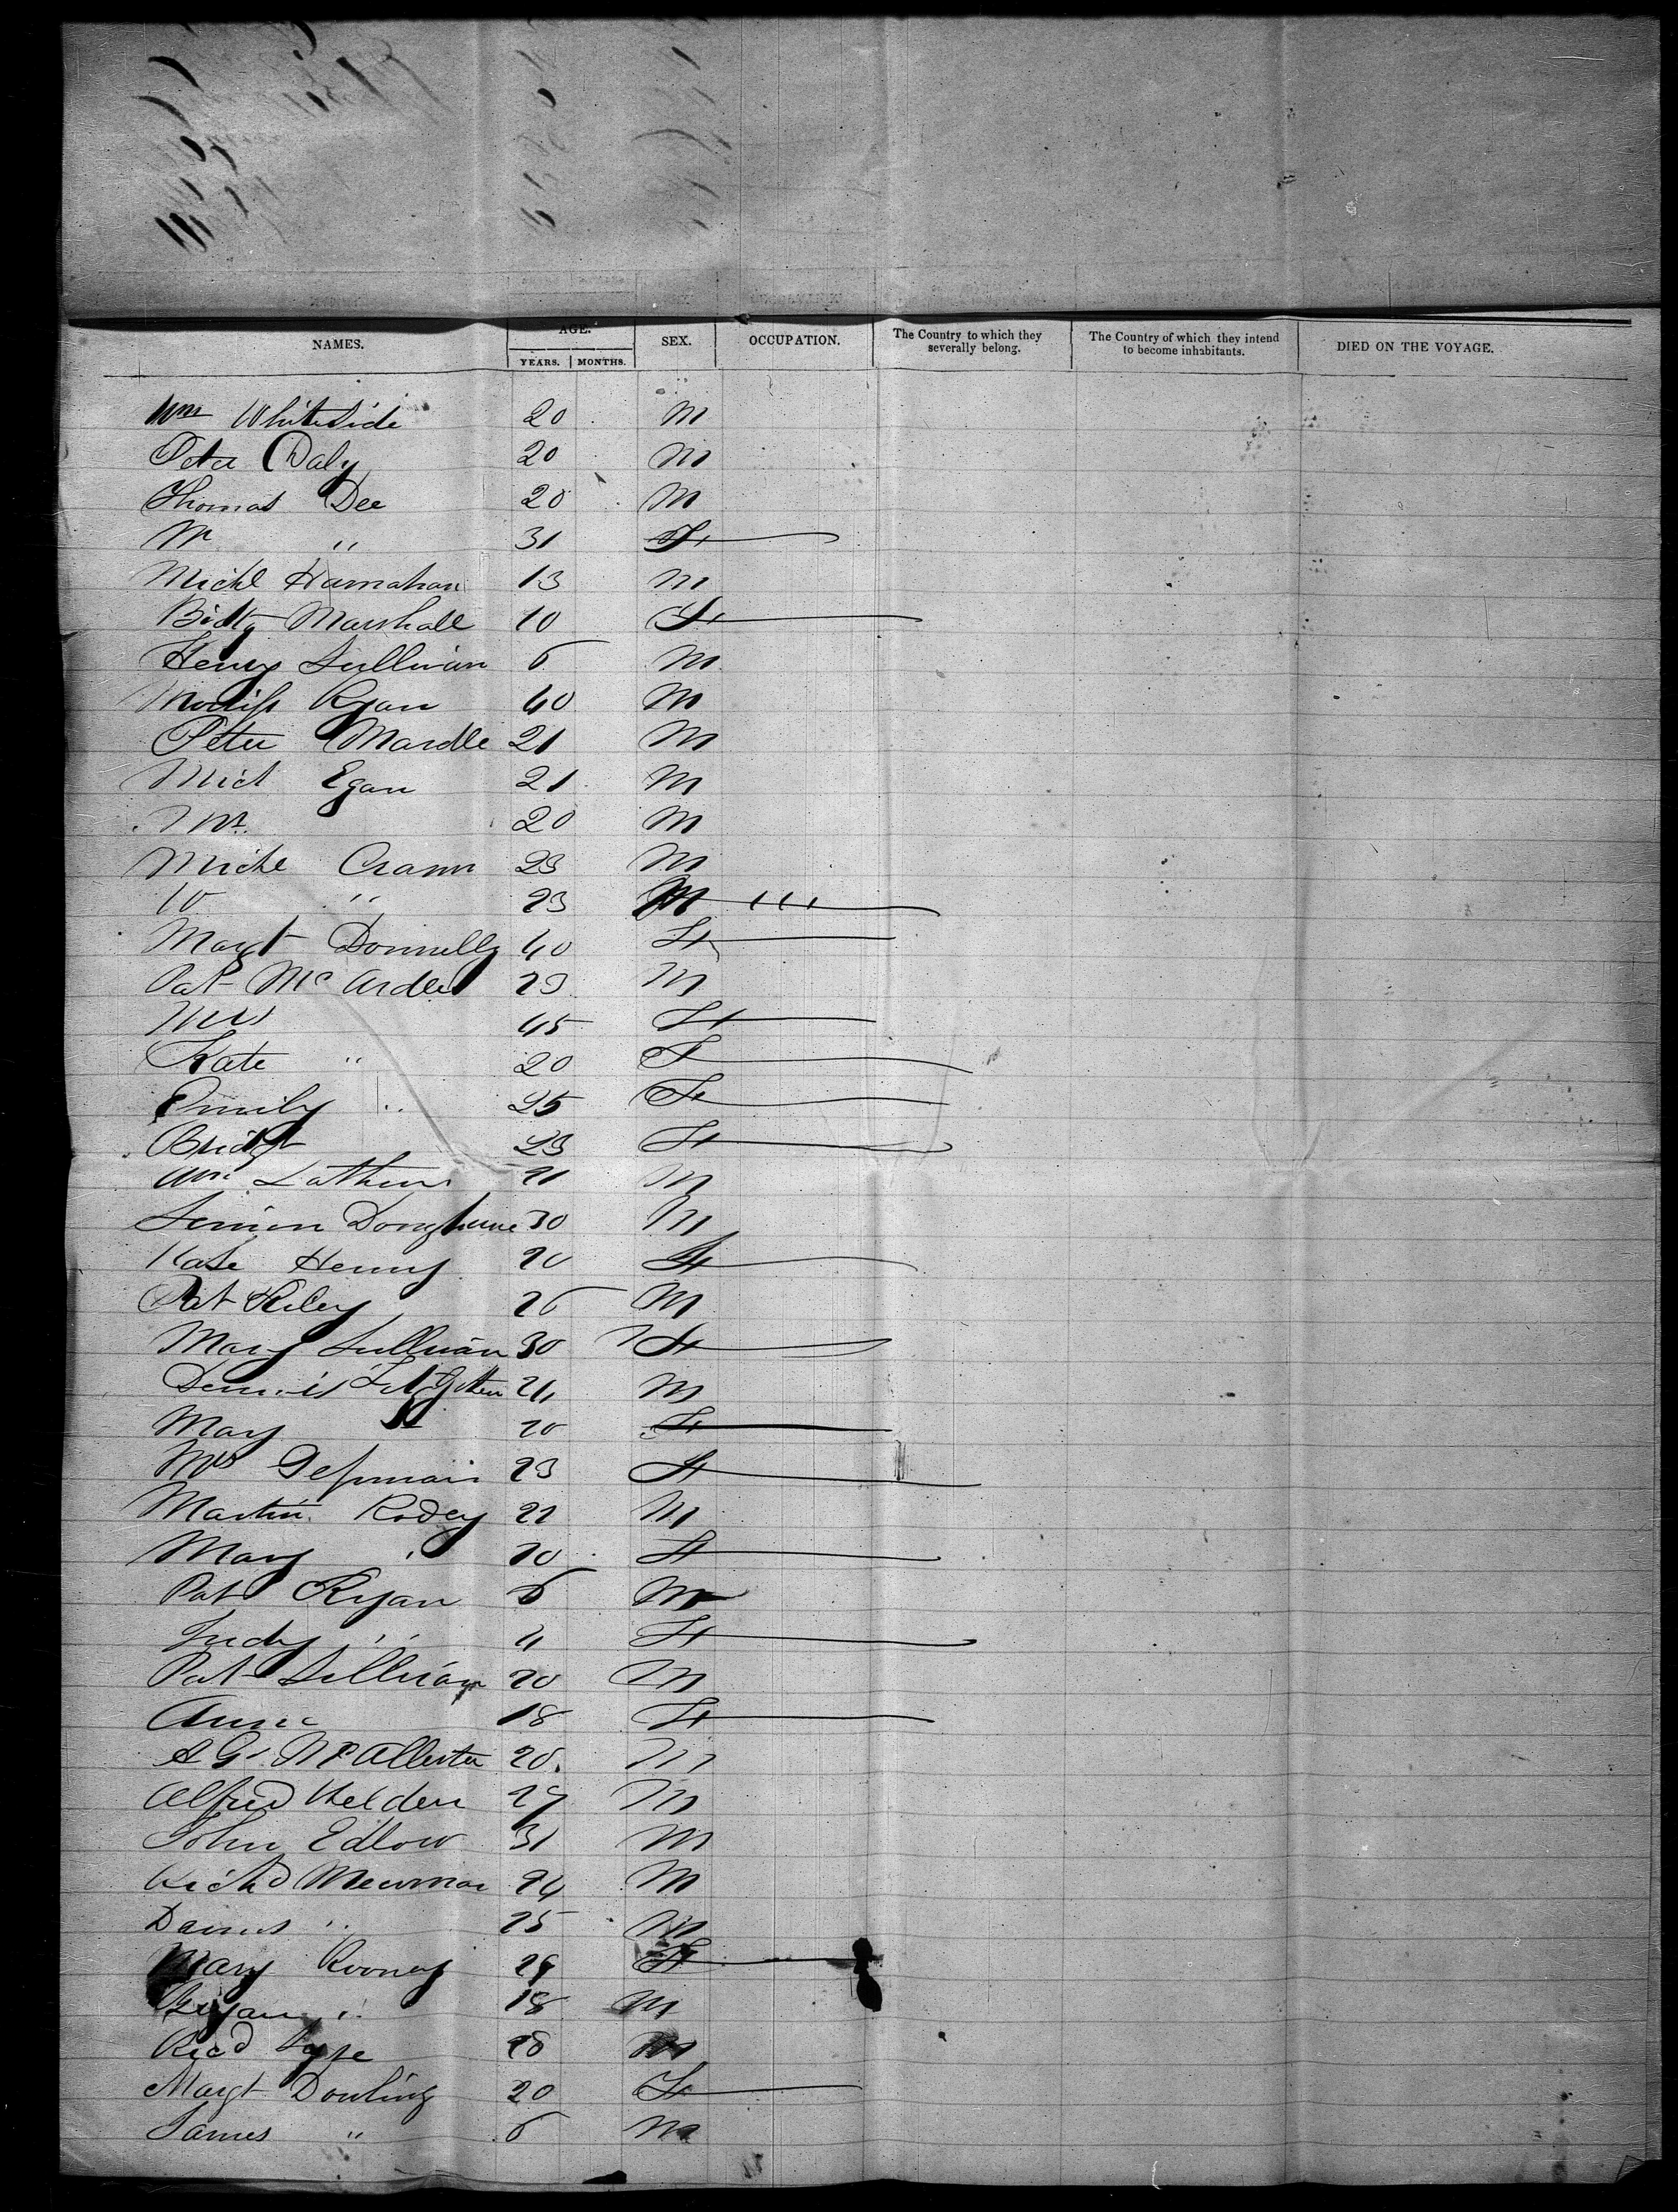 NAMES. AGE. YEARS. MONTHS. SEX. OCCUPATION. The Country to which they severally belong. The Country of which they intend to become inhabitants. DIED ON THE VOYAGE.
Wm Whiteside 20 M
Peter Daly 20 M
Thomas Dee 20 M
" 31 F
Michl Hannahan 13 M
Bidty Marshall 10 F
Henry Sullivan 6 M
Ryan 40 M
Peter Mardle 21 M
Mich Egan 21 M
20 M
Miche Crann 23 M
W " 23 M
Margt Donnelly 40 F
Pat McArdle 23 M
Mrs 45 F
Kate " 20 F
Emily " 25 F
Bridgt 23 F
Wm 21 M
30 M
Kate Henry 20 F
Pat Riley 26 M
Mary Sullivan 30 F
Dennis 24 M
Mary 20 F
Mrs 23 F
Martin Rodey 22 M
Mary " 20 F
Pat Ryan 6 M
Judy " 4 F
Pat Sullivan 20 M
Anne 18 F
A G McAllister 20 M
Alfred 27 M
John Edlow 31 M
Richd 24 M
" 25 M
Mary Rooney 29 F
" 18 M
Ricd M
Margt Dowling 20 F
James " 6 M